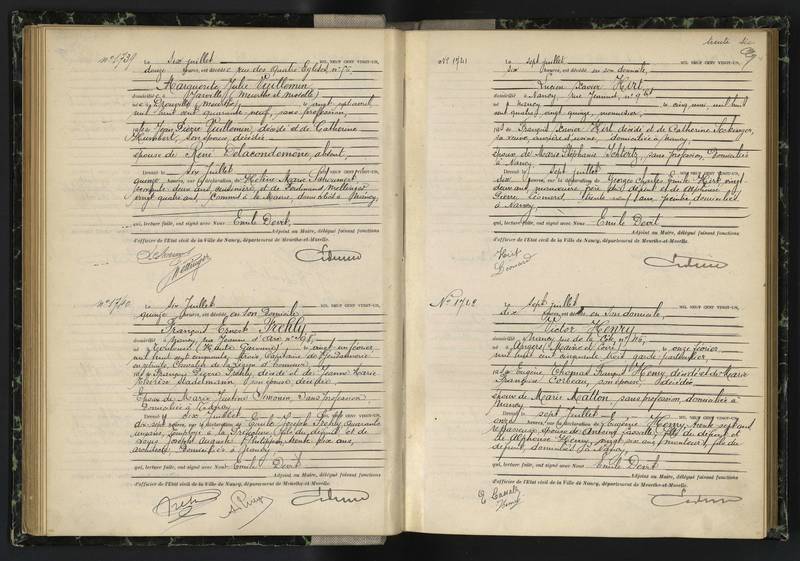 N° 1739
Le six juillet MIL NEUF CENT VINGT-UN,
douze heures, est décédée rue des Quatre Eglises n°
Marguerite Julie Vuillemin
domiciliée à (Meurthe et Moselle)
née à (Meurthe), le vingt sept avril
mil huit cent quarante neuf, sans profession,
fille de Jean Pierre Vuillemin, décédé et de Catherine
Humbert, son épouse, décédée
épouse de René Delacondemène, absent,
Dressé le six Juillet MIL NEUF CENT VINGT-UN,
quinze heures, sur la déclaration de Hélène Marie
ans, et de Ferdinand Mellinger
vingt quatre ans, commis à la Mairie, domiciliés à Nancy,
qui, lecture faite, ont signé avec Nous Emile Devit,
Adjoint au Maire, délégué faisant fonctions
d'officier de l'Etat civil de la Ville de Nancy, département de Meurthe-et-Moselle.
Mellinger
N° 1740
Le six Juillet MIL NEUF CENT VINGT-UN,
quinze heures, est décédé en son domicile
François Ernest Frehly
domicilié à Nancy, rue Jeanne d'Arc n°
né à (Haute Garonne), le vingt un février
mil huit cent cinquante trois, Capitaine de Gendarmerie
en retraite, Chevalier de la Légion d'honneur
fils de François Frehly décédé et de Jeanne Marie
Thérèse Stadelmann, son épouse, décédée
Epoux de Marie Justine Simonin, sans profession
Domiciliée à Nancy
Dressé le six Juillet
dix sept heures, sur la déclaration de Emile Joseph Frehly quarante
un ans, fils du défunt et de
Louis Joseph Auguste trente six ans,
architecte Domiciliés à Nancy
qui, lecture faite, ont signé avec Nous Emile Devit
Adjoint au Maire, délégué faisant fonctions
d'officier de l'Etat civil de la Ville de Nancy, département de Meurthe-et-Moselle.
trente six
N° 1741
Le sept juillet MIL NEUF CENT VINGT-UN,
dix heures, est décédé en son domicile,
Lucien Xavier Hert
domicilié à Nancy, rue Jeannot, n° 9 bis
né à Nancy, le cinq mai, mil huit
cent quatre vingt quinze, menuisier,
fils de François Xavier Hert décédé et de Catherine
sa veuve, ouvrière d'usine, domiciliée à Nancy,
époux de Marie Stéphanie Schlertz, sans profession, Domiciliée
à Nancy.
Dressé le sept juillet MIL NEUF CENT VINGT-UN,
dix heures, sur la déclaration de Georges Charles Emile Hert vingt
deux ans, manoeuvre, frère du défunt et de Alphonse
Pierre Léonard, trente neuf ans, peintre, domiciliés
à Nancy,
qui, lecture faite, ont signé avec Nous Emile Devit
Adjoint au Maire, délégué faisant fonctions
d'officier de l'Etat civil de la Ville de Nancy, département de Meurthe-et-Moselle.
Hert
Léonard
N° 1742
Le sept juillet MIL NEUF CENT VINGT-UN,
dix heures, est décédé en son domicile,
Victor Henry
domicilié à Nancy rue de la n° 116,
né à Angers (Maine et Loire), le onze février,
mil huit cent cinquante trois garde
fils de Eugène François Henry, décédé et de Marie
Françoise Corbeau, son épouse, décédée,
époux de Marie Mallon sans profession, domiciliée à
Nancy
Dressé le sept Juillet
onze heures, sur la déclaration de Eugénie Henry, trente sept ans
repasseuse, épouse de Antoine Cassale, fille du défunt et
de Alphonse Henry, vingt six ans, monteur, fils du
défunt, domiciliés à Nancy,
qui, lecture faite, ont signé avec Nous Emile Devit
Adjoint au Maire, délégué faisant fonctions
d'officier de l'Etat civil de la Ville de Nancy, département de Meurthe-et-Moselle.
E Cassale
Henry